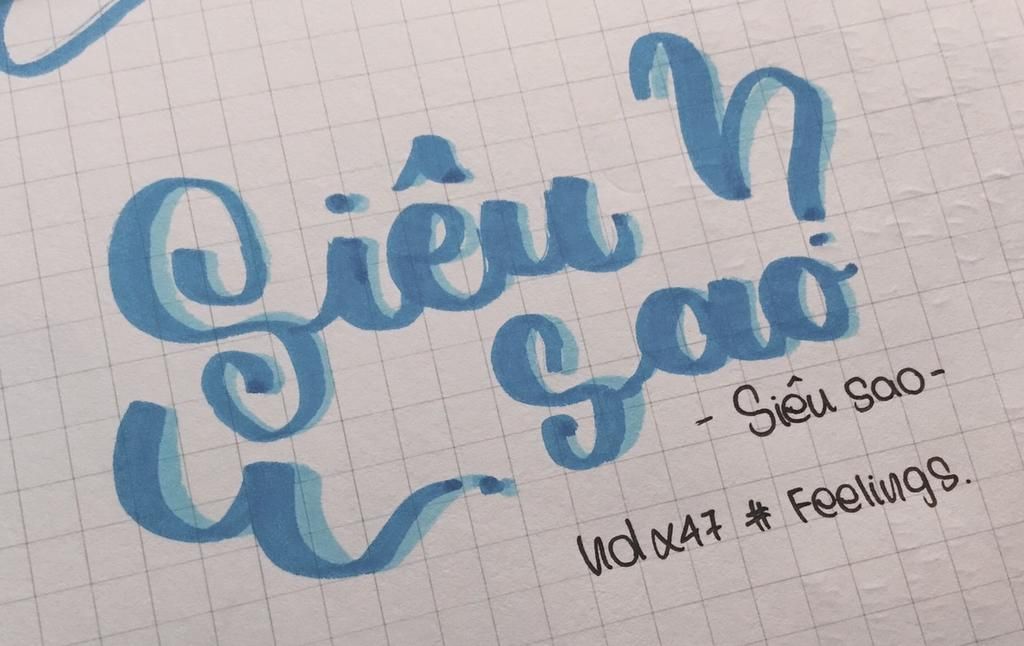 Siêu
sao
- Siêu sao -
ndx47 # Feelings.